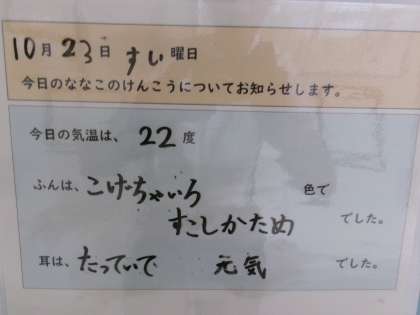 10月23日 すい曜日
今日のななこのけんこうについてお知らせします。
今日の気温は、22度
ふんは、こげちゃいろ 色で
すこしかため でした。
耳は、たっていて 元気 でした。